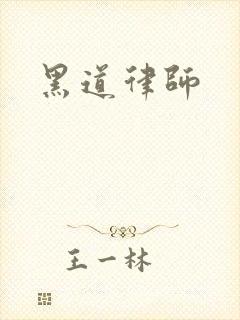 黑道律師
王一林